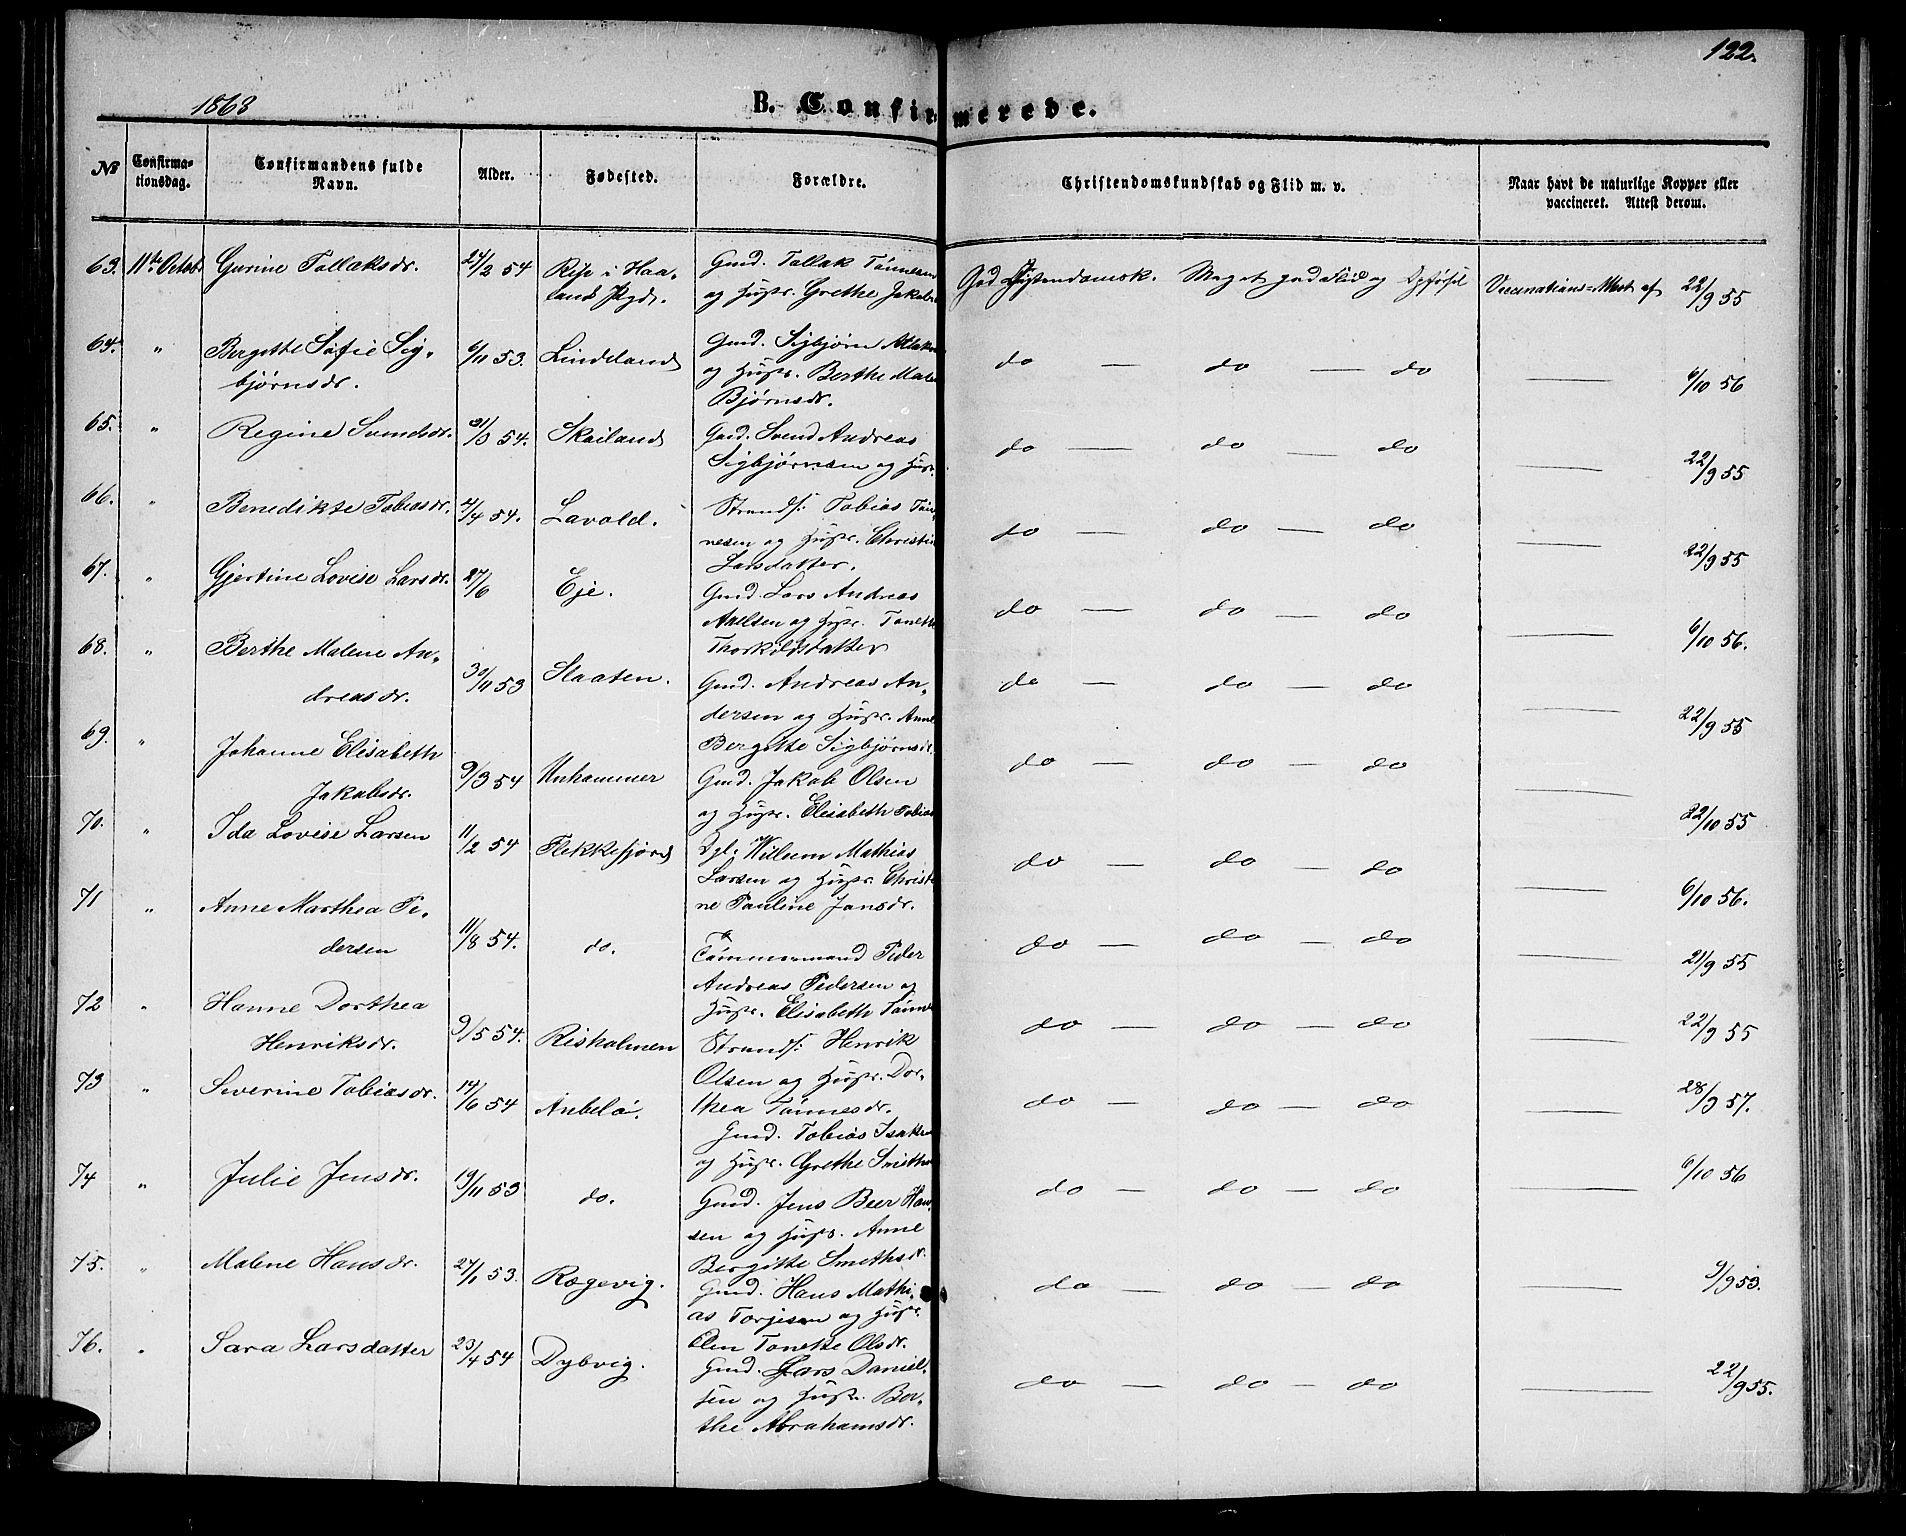 122.
1863 B. Confirmerede.
№ Confirmationsdag. Confirmandens fulde Navn. Alder. Fødested. Forældre. Christendomskundskab og Flid m. v. Naar havt de naturlige Kopper eller vaccineret. Attest derom.
63. 11te Octob. Gurine Tollaksdr. 24/2 54 Gmd. Tollak Tønnesen
og Hustr. Grethe Jakobs
God Christendomsk. Meget god Flid og Opførsel Vaccinations=Attest af 22/9 55
64. " Bergitte Sofie Sig-
bjørnsdr. 6/11 53. Lindeland Gmd. Sigbjørn
og Hustr. Berthe Male
Bjørnsdr.
do — do — do — 6/10 56
65. " Regine Svendsdr. 31/3 54. Skailand Gmd. Svend Andreas
Sigbjørnsen og Hustr.
do — do — do — 22/9 55
66. " Benedikte Tobiasdr. 2/4 54. Lavold. Strands: Tobias Tøn-
nesen og Hustr. Christi
Larsdatter.
do — do — do — 22/9 55
67. " Gjertine Lovise Larsdr. 27/6 Eje. Gmd. Lars Andreas
Axelsen og Hustr. Tonette
Thorkildsdatter
do — do — do — 6/10 56.
68. " Berthe Malene An-
dreasdr. 30/11 53 Staaten. Gmd. Andreas An-
dersen og Hustr. Anne
Bergitte Sigbjørnsdr.
do — do — do — 22/9 55
69. " Johanne Elisabeth
Jakobsdr. 9/3 54 Unhammer Gmd. Jakob Olsen
og Hustr. Elisabeth Tobias
do — do — do — 22/10 55
70. " Ida Lovise Larsen 11/2 54 Flekkefjord Mathias
Larsen og Hustr. Christi
ne Pauline Jansdr.
do — do — do — 6/10 56.
71 " Anne Marthea Pe-
dersen 11/8 54. do. Tømmermand Peder
Andreas Pedersen og
Hustr. Elisabeth Tønne
do — do — do — 21/9 55
72 " Hanne Dorthea
Henriksdr. 9/5 54. Risholmen Strands: Henrik
Olsen og Hustr. Dor-
thea Tønnesdr.
do — do — do — 22/9 55
73 " Severine Tobiasdr. 14/6 54 Anbelø. Gmd. Tobias Isaks
og Hustr. Grethe Smiths
do — do — do — 28/9 57.
74 " Julie Jensdr. 19/11 53 do. Gmd. Jens Beer Han-
sen og Hustr. Anne
Bergitte Smethsdr.
do — do — do — 6/10 56
75. " Malene Hansdr. 27/1 53. Rægevig. Gmd. Hans Mathi-
as Torjesen og Hustr.
Elen Tonette Olsdr.
do — do — do — 9/9 53.
76. " Sara Larsdatter 23/4 54 Dybvig. Gmd. Lars Daniel-
sen og Hustr. Ber-
the Abrahamsdr.
do — do — do — 22/9 55.